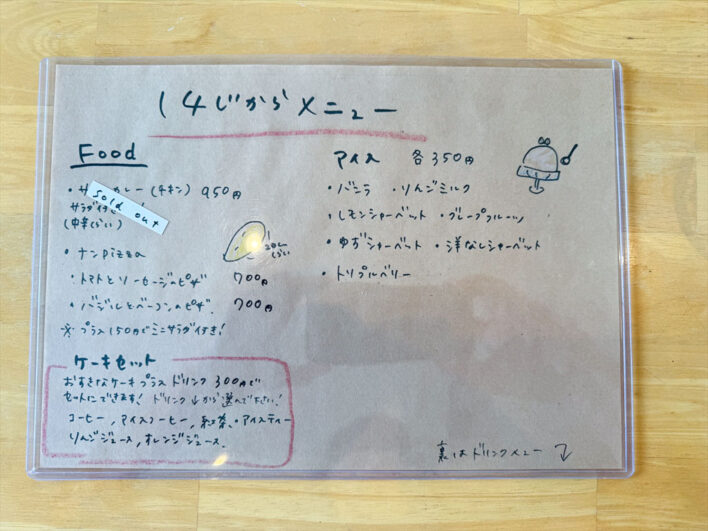 14じからメニュー
Food
・サ カレー(チキン) 950円
sold out
サラダ付
(中辛くらい)
20cmくらい
・ナンpizza
・トマトとソーセージのピザ 700円
・バジルとベーコンのピザ 700円
※プラス150円でミニサラダ付き!
ケーキセット
おすきなケーキプラスドリンク300円で
セットにできます! ドリンク↓から選んで下さい!
コーヒー, アイスコーヒー, 紅茶・アイスティー
りんごジュース, オレンジジュース.
アイス 各350円
・バニラ ・りんごミルク
・レモンシャーベット ・グレープフルーツ
・ゆずシャーベット ・洋なしシャーベット
・トリプルベリー
裏はドリンクメニュー